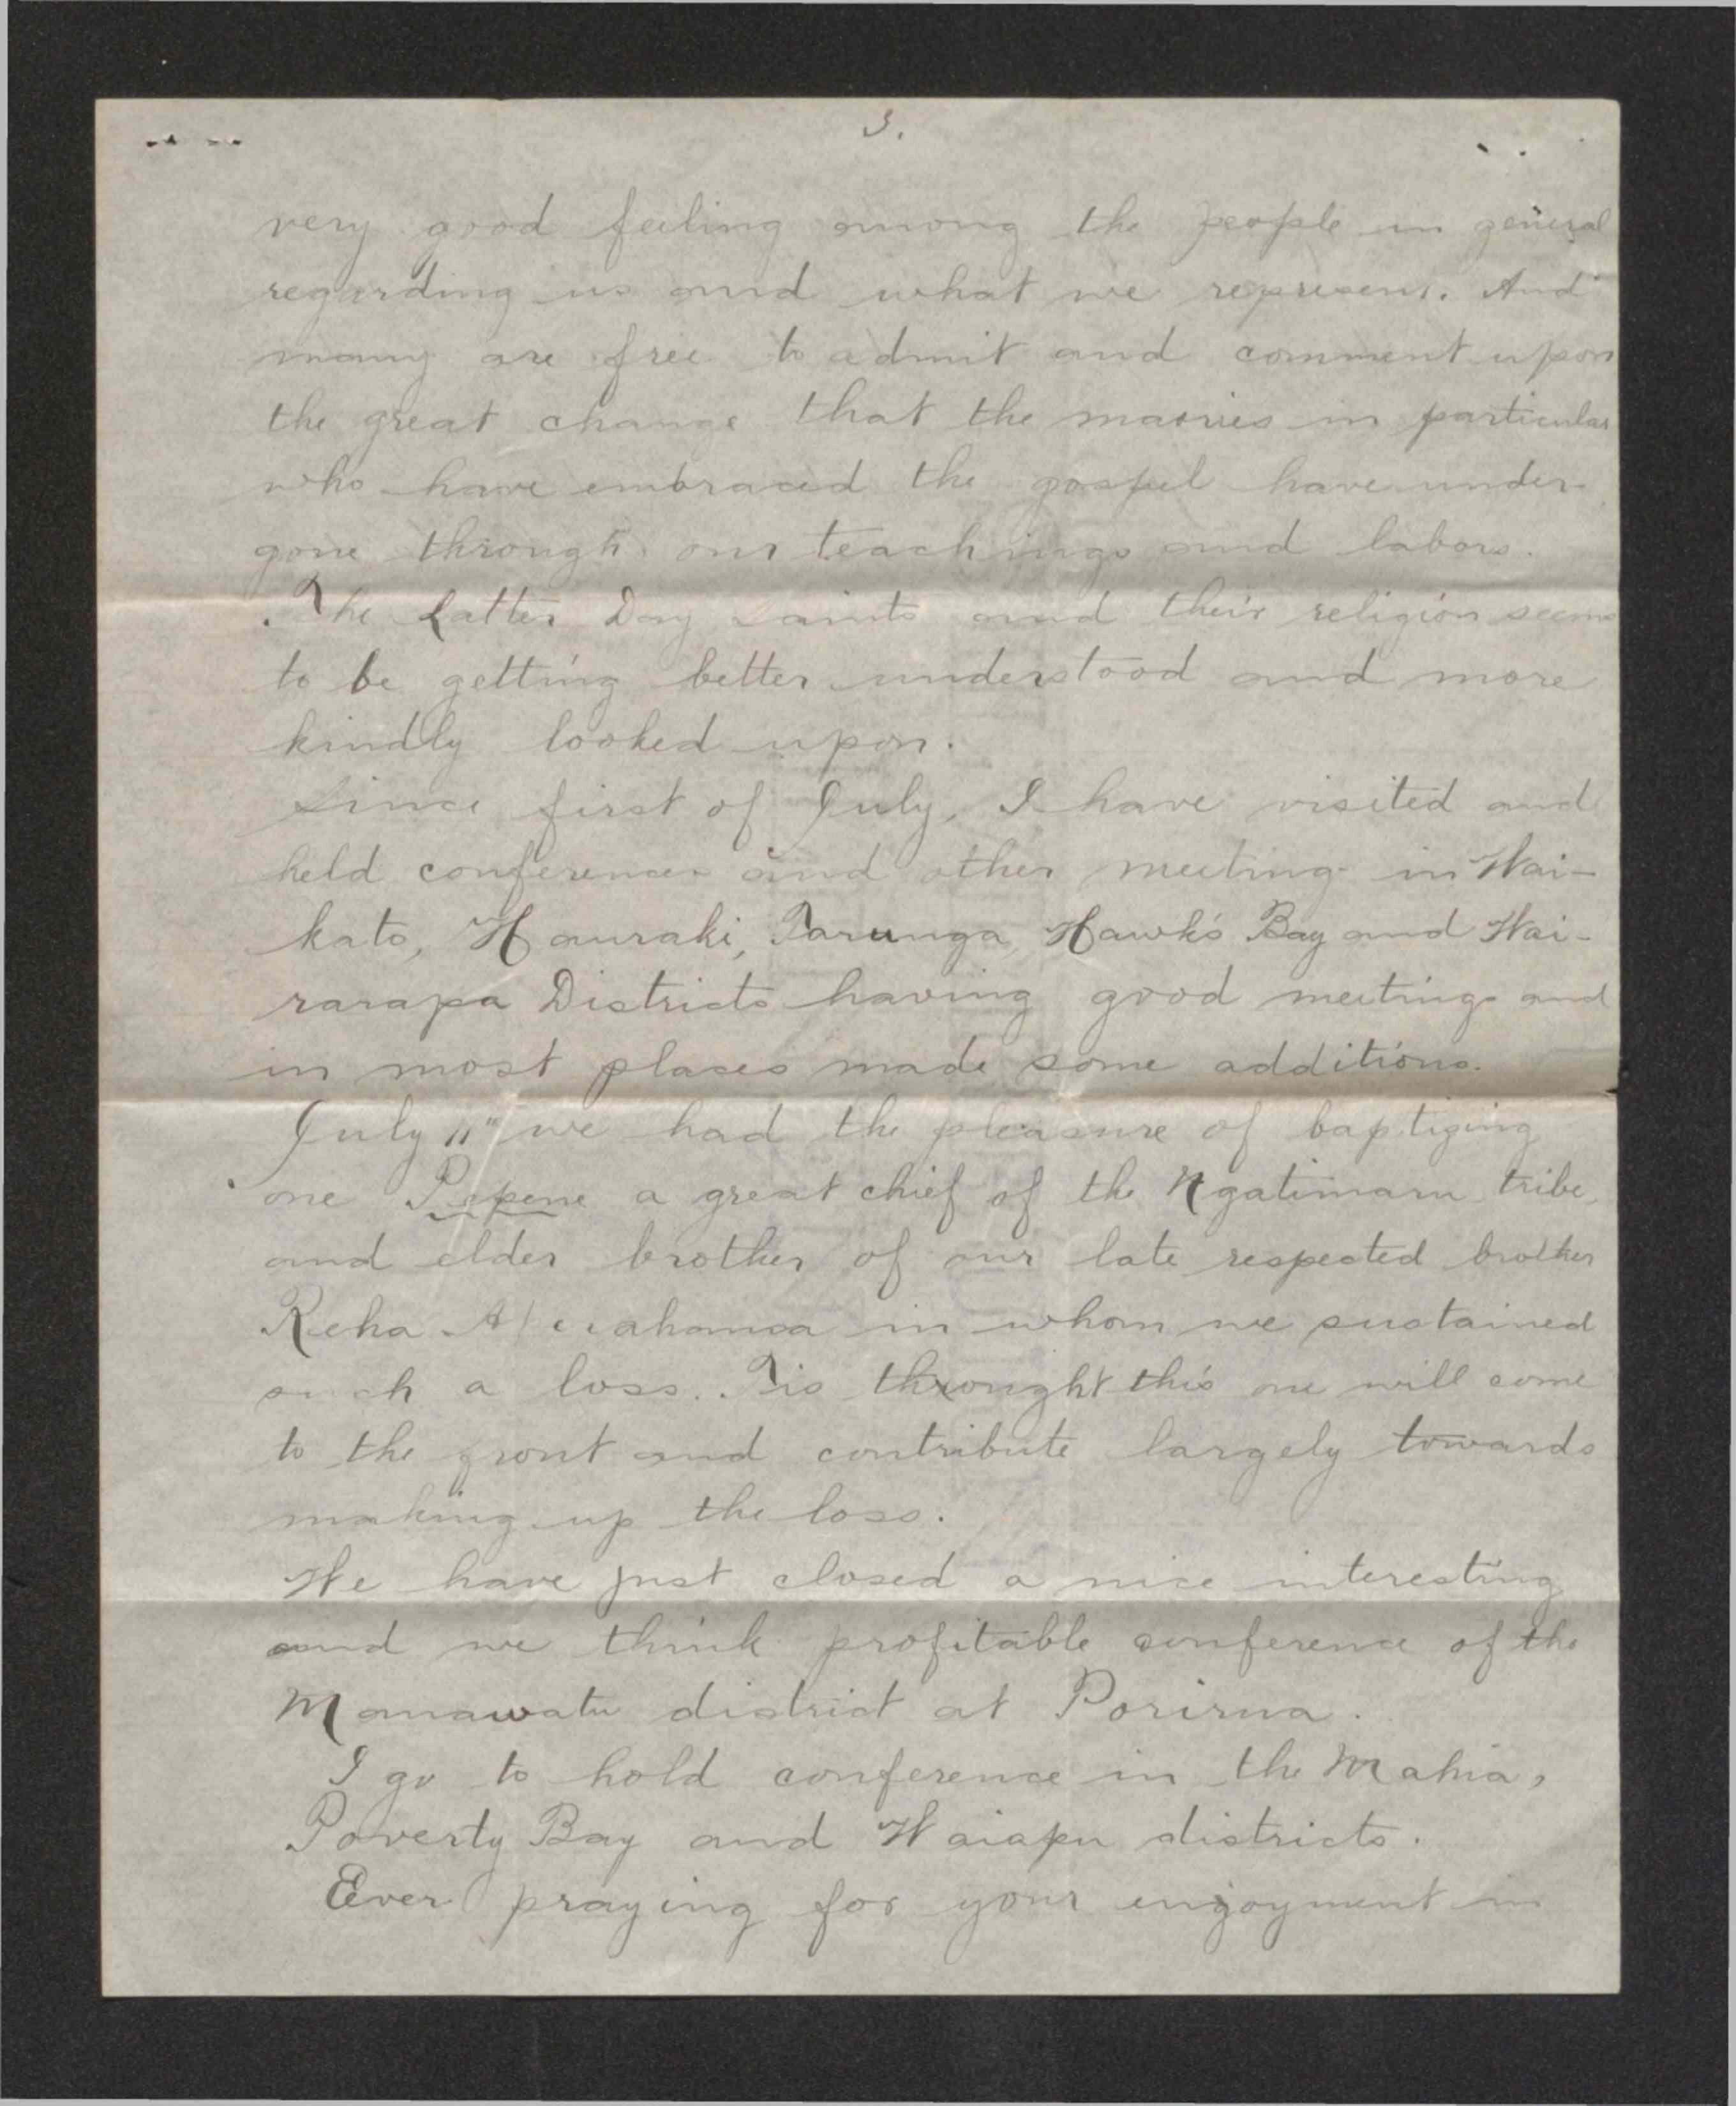 3.
very good feeling among the people in general
regarding us and what we represent. And
many are free to admit and comment upon
the great change that the maories in particular
who have embraced the gospel have under-
gone through our teachings and labors.
The Latter Day Saints and their religion seems
to be getting better understood and more
kindly looked upon.
Since first of July, I have visited and
held conferences and other meetings in Wai-
kato, Hauraki, Tarunga, Hawk's Bay and Wai-
rarapa Districts having good meetings and
in most places made some additions.
July 11" we had the pleasure of baptizing
one Pepene a great chief of the Ngatimaru tribe,
and elder brother of our late respected brother
Reha in whom we sustained
such a loss. Tis throught this one will come
to the front and contribute largely towards
making up the loss.
We have just closed a nice interesting
and we think profitable conference of the
Manawatu district at Porirua.
I go to hold conference in the Mahia,
Poverty Bay and Waiapu districts.
Ever praying for your enjoyment in